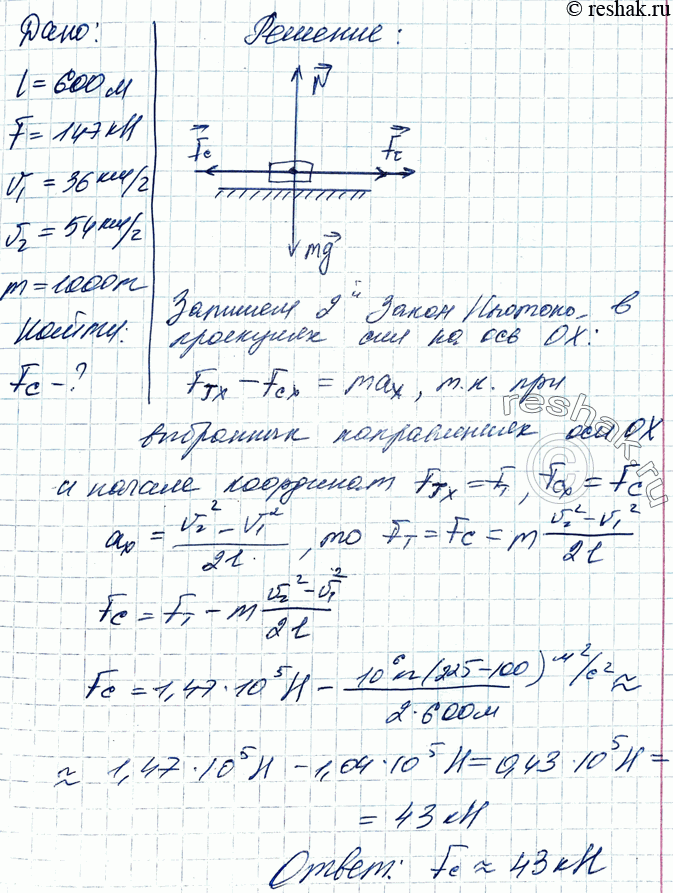 © reshak.ru
Дано:
l = 600 м
F = 147 кН
v₁ = 36 км/г
v₂ = 54 км/г
m = 1000 т
Найти:
Fc - ?
Решение:
N
Fc
Fт
mg
Запишем 2й закон Ньютона в
проекциях сил на ось OX:
Fтx − Fcx = max, т.к. при
выбранных направлениях оси OX
и начале координат Fтx = Fт, Fcx = Fc
ax = (v₂² − v₁²)/2l, то Fт = Fc = m (v₂² − v₁²)/2l
Fc = Fт − m (v₂² − v₁²)/2l
Fc = 1,47·10⁵ Н − 10⁶ кг (225−100) м²/с² / 2·600 м ≈
≈ 1,47·10⁵ Н − 1,04·10⁵ Н = 0,43·10⁵ Н =
= 43 кН
Ответ: Fc ≈ 43 кН
reshak.ru
©